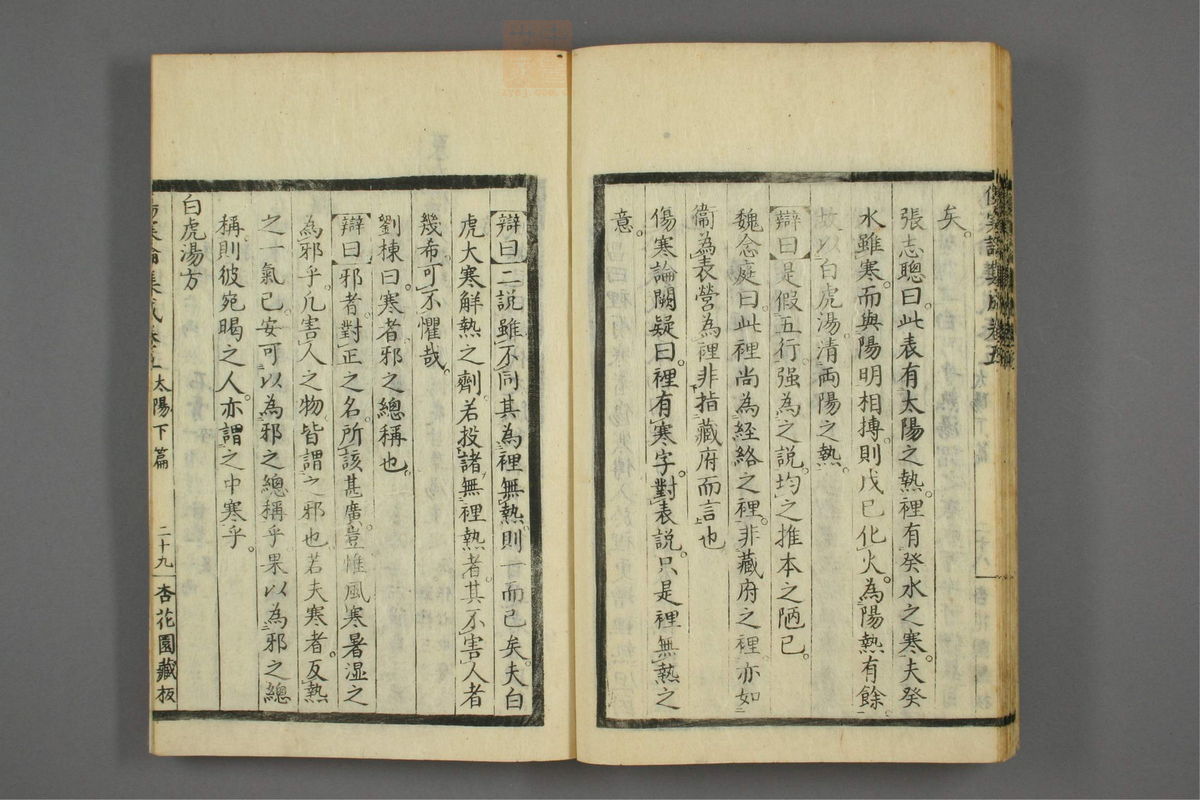 矣。
張志聰曰。此表有太陽之熱。裡有癸水之寒。夫癸
水雖寒。而與陽明相搏。則戊己化火。為陽熱有餘
故以白虎湯清両陽之熱。
辯曰是假五行。强為之說。均之推本之陋已。
魏念庭曰。此裡尚為経絡之裡。非藏府之裡。亦如
衞為表營為裡。非指藏府而言也
傷寒論闕疑曰。裡有寒字。對表說。只是裡無熱之
意。
辯曰二說雖不同。其為裡無熱。則一而已矣。夫白
虎大寒解熱之劑。若投諸無裡熱者。其不害人者
幾希。可不懼哉。
劉棟曰。寒者。邪之總稱也。
辯曰邪者。對正之名。所該甚廣。豈惟風寒暑湿之
為邪乎。凡害人之物。皆謂之邪也若夫寒者。反熱
之一氣已。安可以為邪之總稱乎果以為邪之總
稱。則彼宛暍之人。亦謂之中寒乎。
白虎湯方
傷寒論集成卷五 太陽下篇 二十九 杏花園藏板